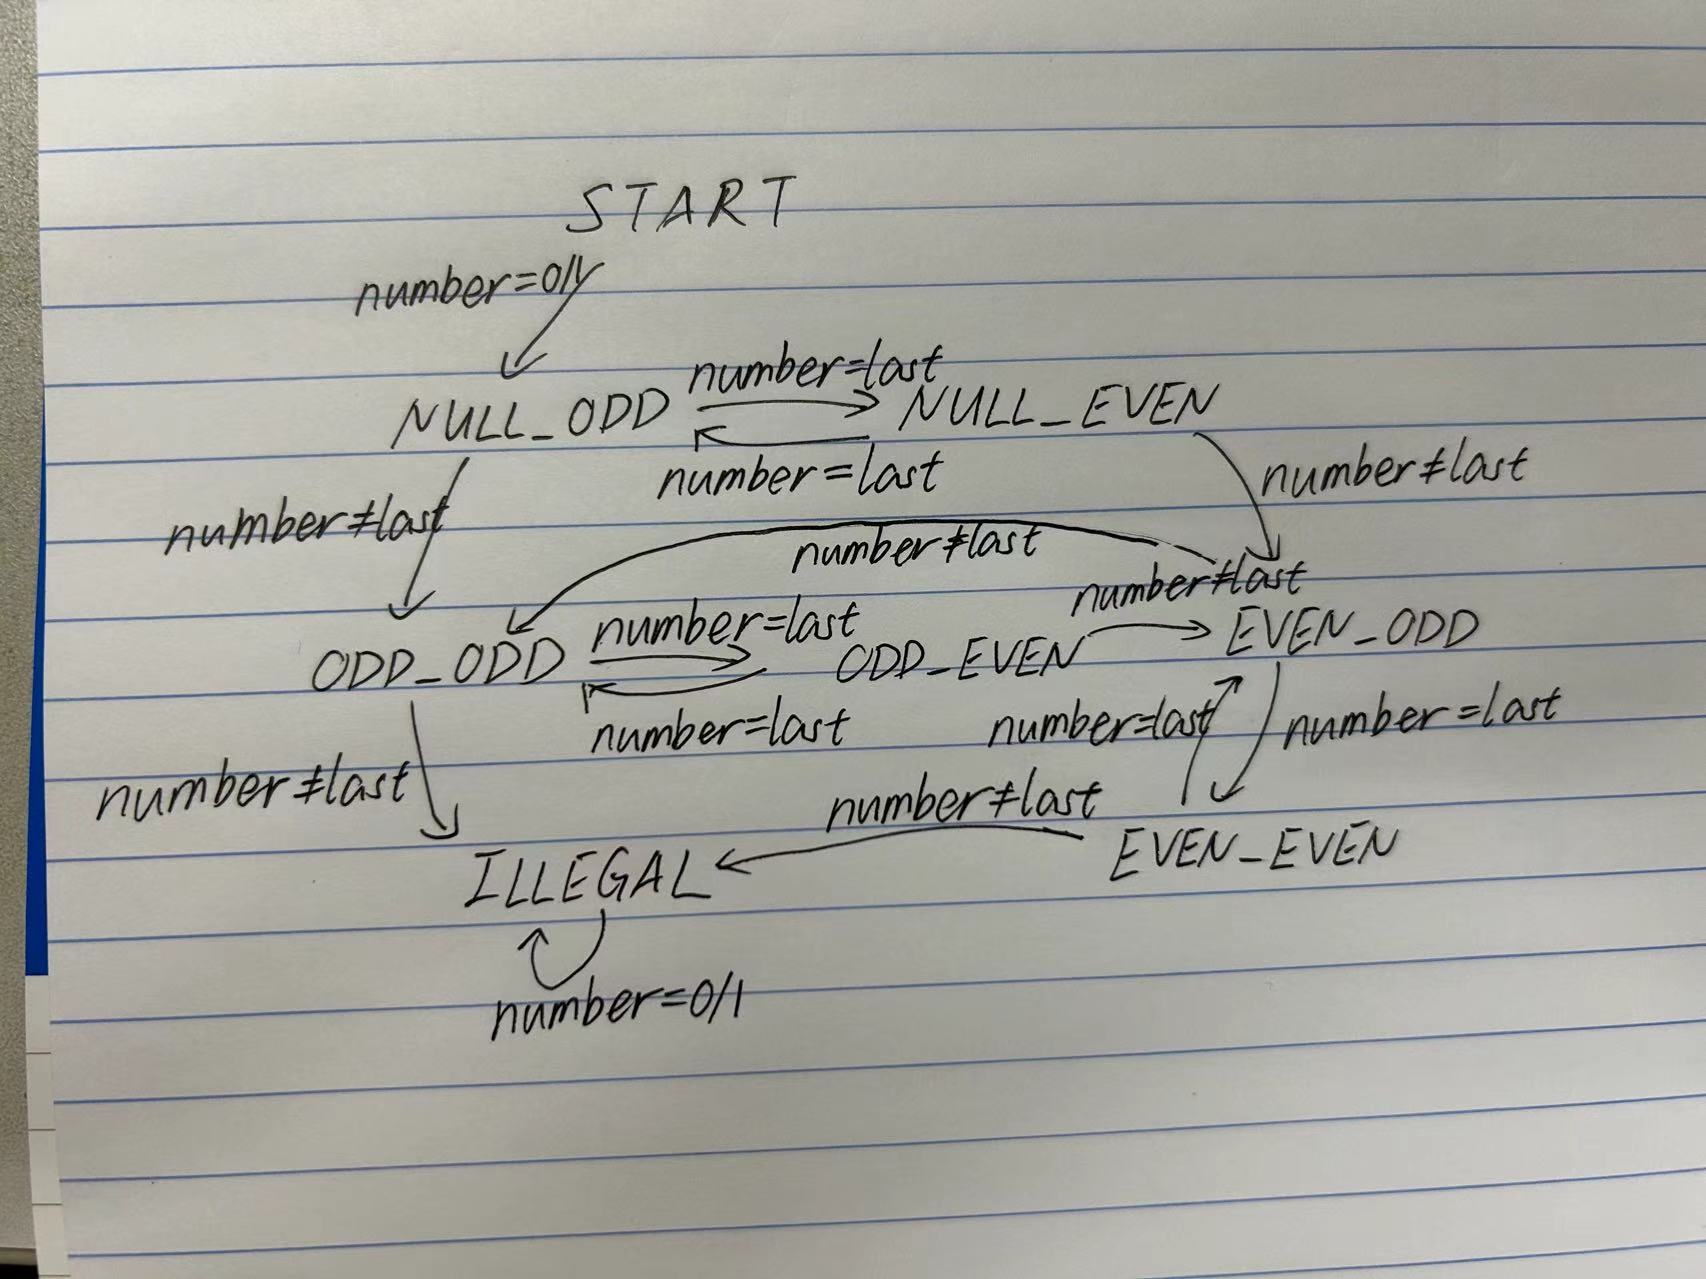 START
number=0/1
number=last
NULL_ODD
NULL_EVEN
number=last
number≠last
number≠last
number≠last
number≠last
number=last
ODD_ODD
ODD_EVEN
EVEN_ODD
number=last
number=last
number=last
number≠last
number≠last
ILLEGAL
EVEN_EVEN
number=0/1